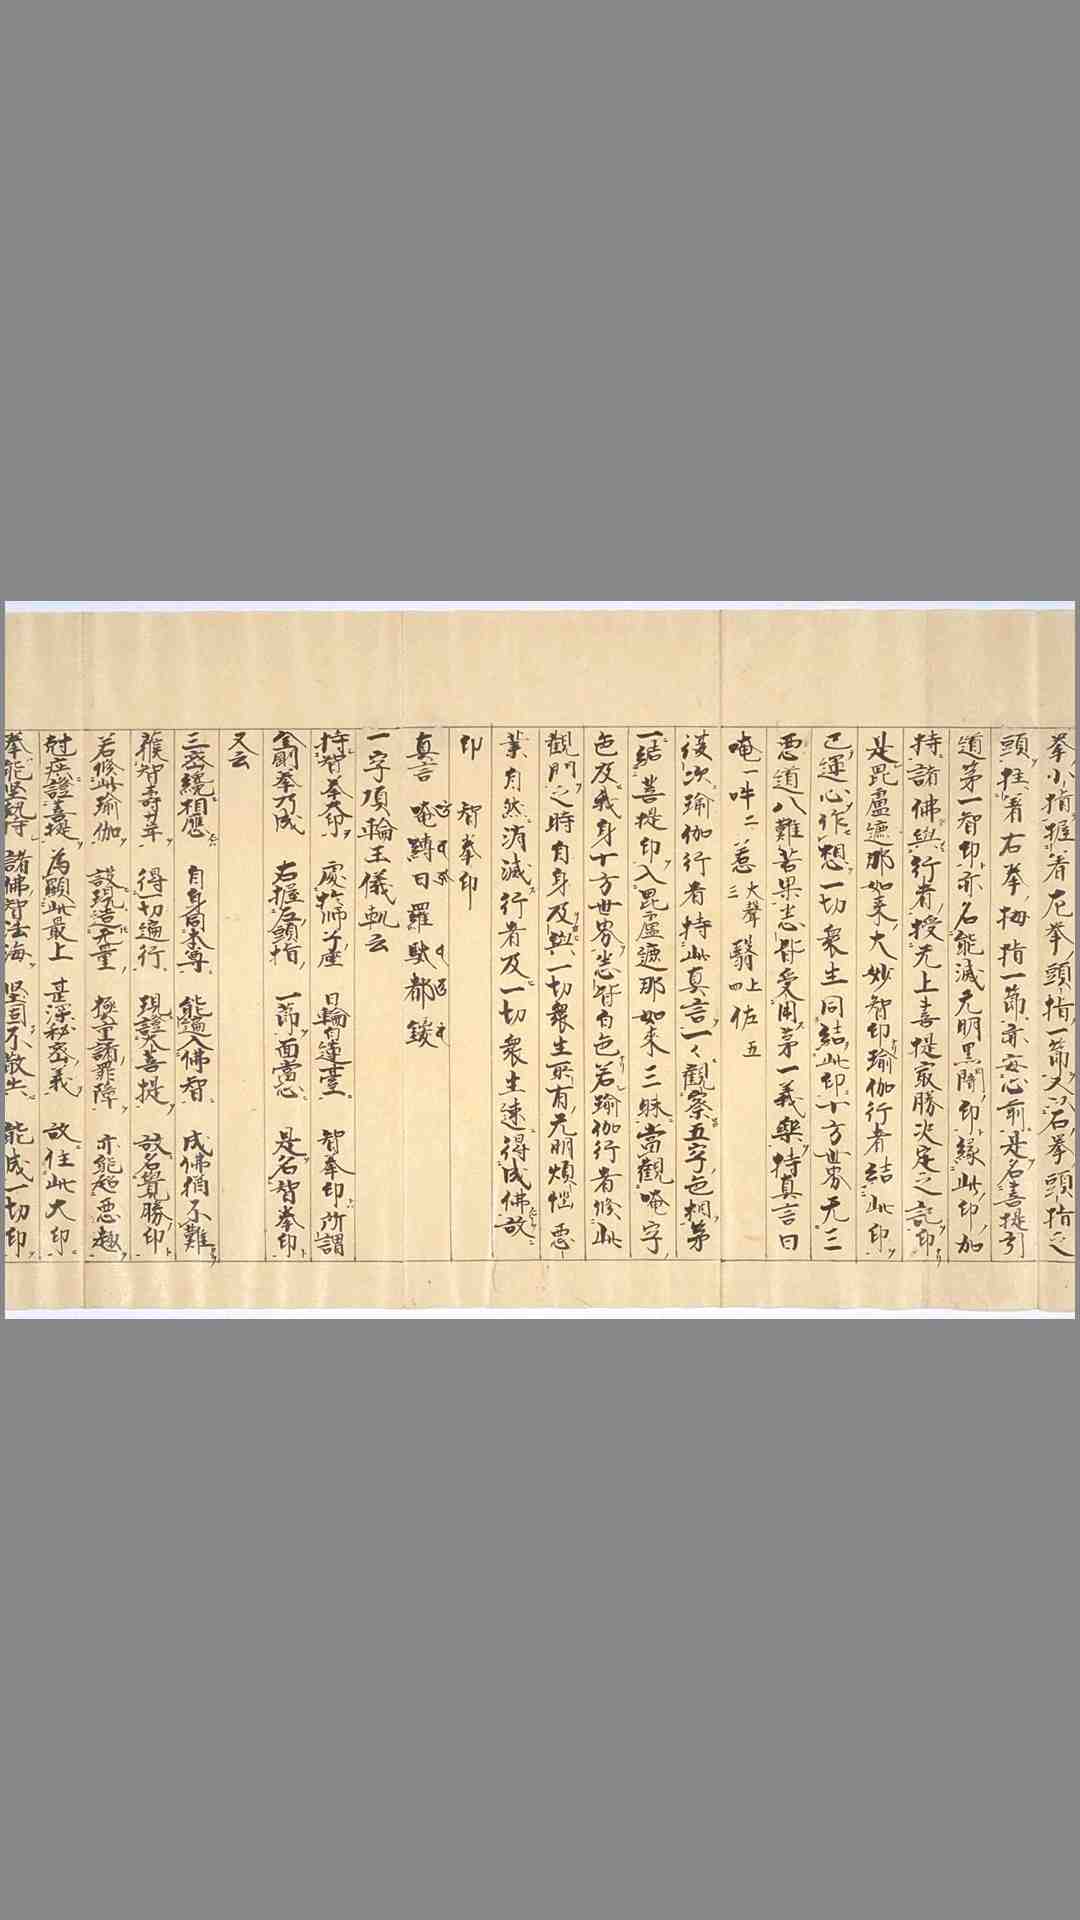 拳小指握着左拳頭指一節又以右拳頭指之
頭拄着右拳拇指一節亦安心前是名菩提引
道第一智印亦名能滅无明黒闇印縁此印加
持諸佛與行者授无上菩提冣勝決定之記印
是毘盧遮那如来大妙智印瑜伽行者結此印
已運心作想一切衆生同結此印十方世界无三
悪道八難苦果悉皆受用第一義樂持真言曰
唵一吽二惹大聲三翳上四佐五
復次瑜伽行者持此真言一々觀察五字色相第
一結菩提印入毘盧遮那如来三昧當觀唵字
色及我身十方世界悉皆白色若瑜伽行者修此
觀門之時自身及與一切衆生所有无明煩惱悪
業自然消滅行者及一切衆生速得成佛故
印 智拳印
真言 唵縛日羅駄都鍐
一字頂輪王儀軌云
持智拳大印 處於師子座 日輪白蓮臺 智拳印所謂
金剛拳乃成 右握左頭指 一節面當心 是名智拳印
又云
三密纔相應 自身同本尊 能遍入佛智 成佛猶不難
獲智壽 得一切遍行 現證大菩提 故名覺勝印
若修此瑜伽 設現造无量 極重諸罪障 亦能超悪趣
疾證菩提 為顯此最上 甚深秘密義 故住此大印
拳能堅執持 諸佛智法海 堅固不散失 能成一切印